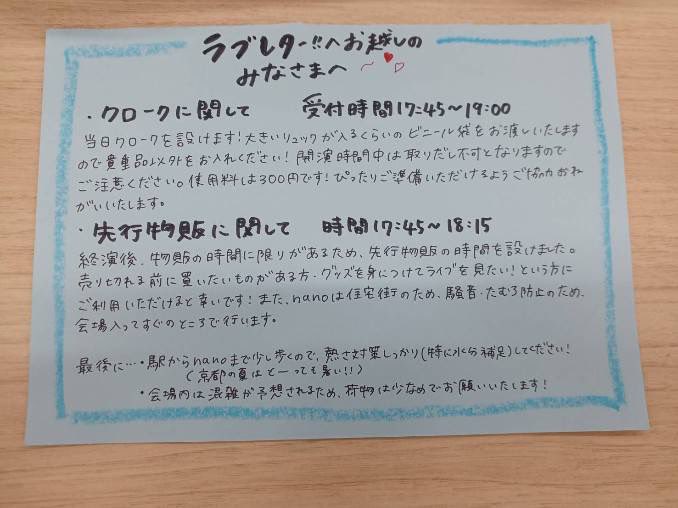 ラブレター!!へお越しの
みなさまへ ～♥♡
・クロークに関して 受付時間17:45～19:00
当日クロークを設けます!大きいリュックが入るくらいのビニール袋をお渡しいたします
ので貴重品以外をお入れください!開演時間中は取りだし不可となりますので
ご注意ください。使用料は300円です!ぴったりご準備いただけるようご協力おね
がいいたします。
・先行物販に関して 時間17:45～18:15
終演後、物販の時間に限りがあるため、先行物販の時間を設けました。
売り切れる前に買いたいものがある方・グッズを身につけてライブを見たい!という方に
ご利用いただけると幸いです!また、nanoは住宅街のため、騒音・たむろ防止のため、
会場入ってすぐのところで行います。
最後に…・駅からnanoまで少し歩くので、熱さ対策しっかり(特に水分補足)してください!
(京都の夏はとーっても暑い!!)
・会場内は混雑が予想されるため、荷物は少なめでお願いいたします!